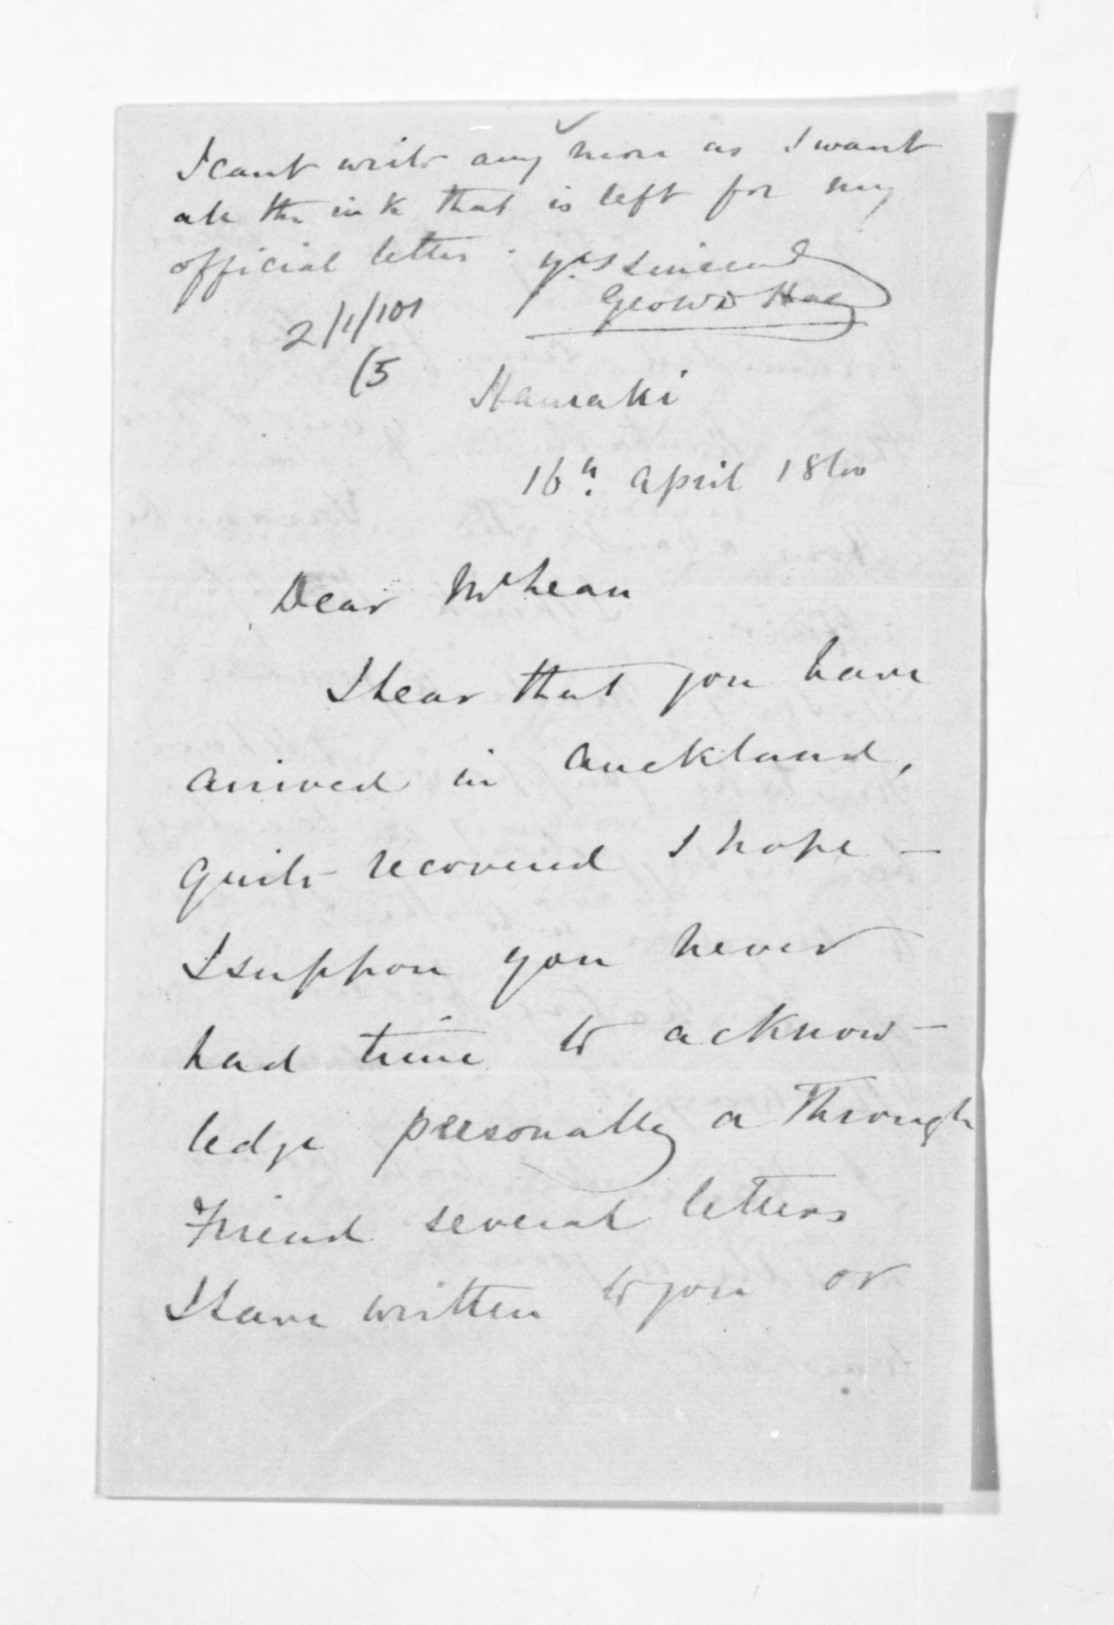 I cant write any more as I want
all the ink that is left for my
official letter. yrs sincerely
Geo W D Hay
2/1/101
(5
Hauraki
16h. April 1860
Dear McLean
I hear that you have
arrived in Auckland,
quite recovered I hope —
I suppose you never
had time to acknow-
ledge personally or through
Friend several letters
I have written to you or